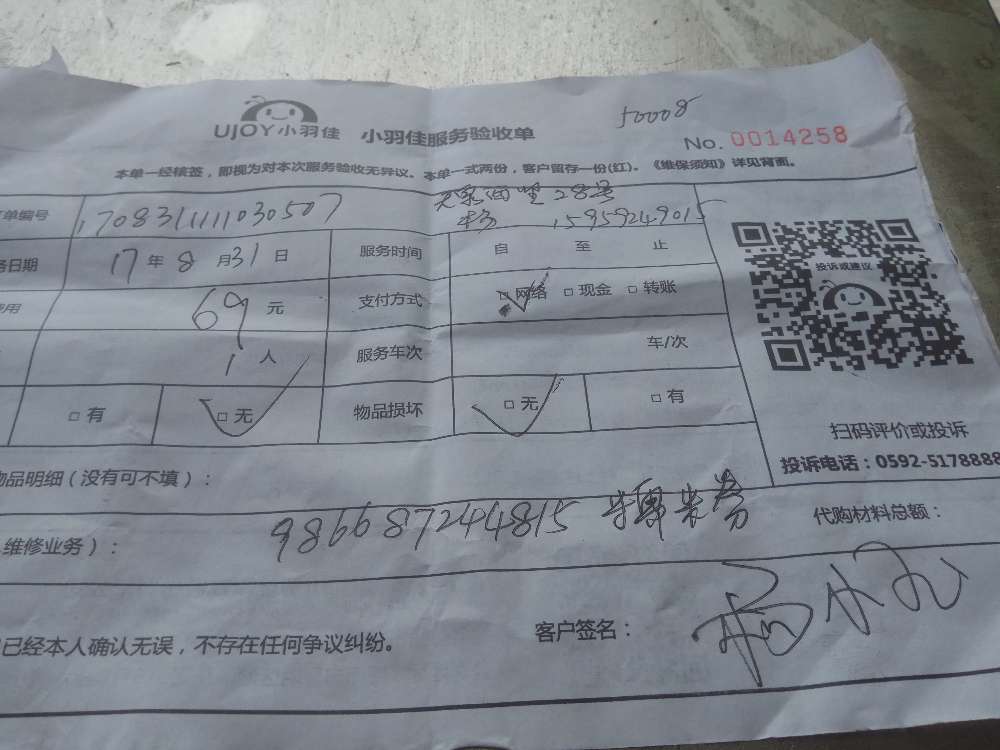 50008
UJOY小羽佳 小羽佳服务验收单
No. 0014258
本单一经核签，即视为对本次服务验收无异议。本单一式两份，客户留存一份(红)。《维保须知》详见背面。
单编号 170831111030507
28号
15959249015
务日期 17年8月31日 服务时间 自 至 止
费用 69元 支付方式 □网络 □现金 □转账
1人 服务车次 车/次
□有 □无 物品损坏 □无 □有
投诉或建议
扫码评价或投诉
投诉电话：0592-5178888
物品明细（没有可不填）：
维修业务）： 986687244815
代购材料总额：
已经本人确认无误，不存在任何争议纠纷。 客户签名：